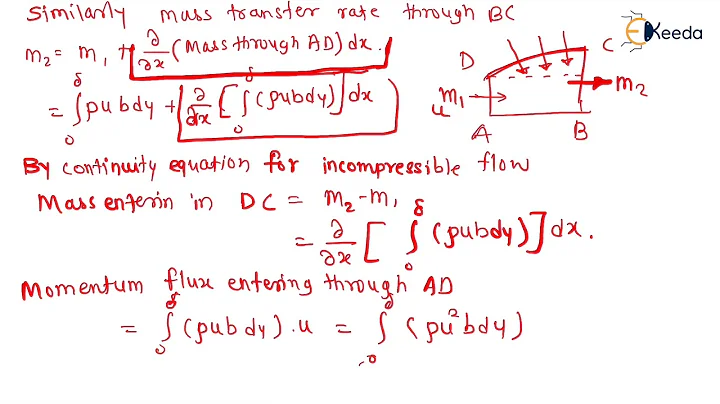 Similarly mass transfer rate through BC
m₂ = m₁ + ∂/∂x (Mass through AD) dx.
= ∫₀^δ ρub dy + ∂/∂x [∫₀^δ (ρubdy)] dx
Keeda
D
C
m₁
u
m₂
A
B
By continuity equation for incompressible flow
Mass enterin in DC = m₂ - m₁
= ∂/∂x [ ∫₀^δ (ρubdy) ] dx.
Momentum flux entering through AD
= ∫₀^δ (ρub dy) . u = ∫₀^δ (ρu²bdy)